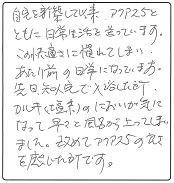 自宅を新築して以来、アクアス5と
ともに日常生活を送っています。
この快適さに慣れてしまい
あたり前の日常になっています。
先日天の宅で入浴した所、
カルキ(塩素)のにおいが気に
なって早々と風呂から上ってしまい
ました。改めてアクアス5の良さ
を感じた所です。